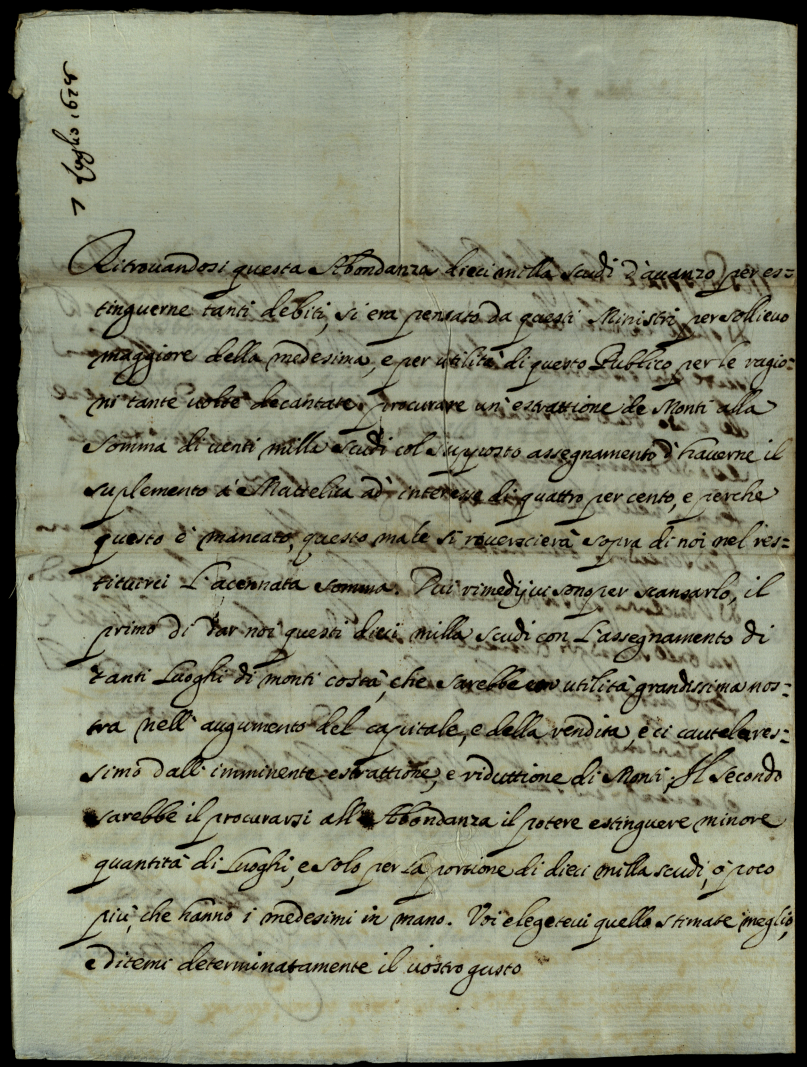 7 Luglio 1625
Ritrouandosi questa Abondanza dieci milla scudi d'auanzo per es=
tinguerne tanti debiti, si era pensato da questi Ministri per sollieuo
maggiore della medesima, e per utilità di questo Publico per le ragio=
ni tante uolte decantate procurare un' estrattione de Monti alla
somma di uenti milla scudi col supposto assegnamento d'hauerne il
suplemento à Mattelica ad' interesse di quattro per cento, e perche
questo è mancato, questo male si rouerscierà sopra di noi nel res=
tituirci L'acennata somma. Dui rimedij ui sono per scansarlo, il
primo di dar noi questi dieci milla scudi con L'assegnamento di
tanti Luoghi di monti costà, che sarebbe con utilità grandissima nos=
tra nell' augumento del capitale, e della rendita e ci cautelares=
simo dall' imminente estrattione, e riduttione di Monti, Il secondo
sarebbe il procurarsi all' Abondanza il potere estinguere minore
quantità di Luoghi, e solo per la portione di dieci milla scudi, ò poco
più, che hanno i medesimi in mano. Voi elegeteui quello stimate meglio,
e ditemi determinatamente il uostro gusto